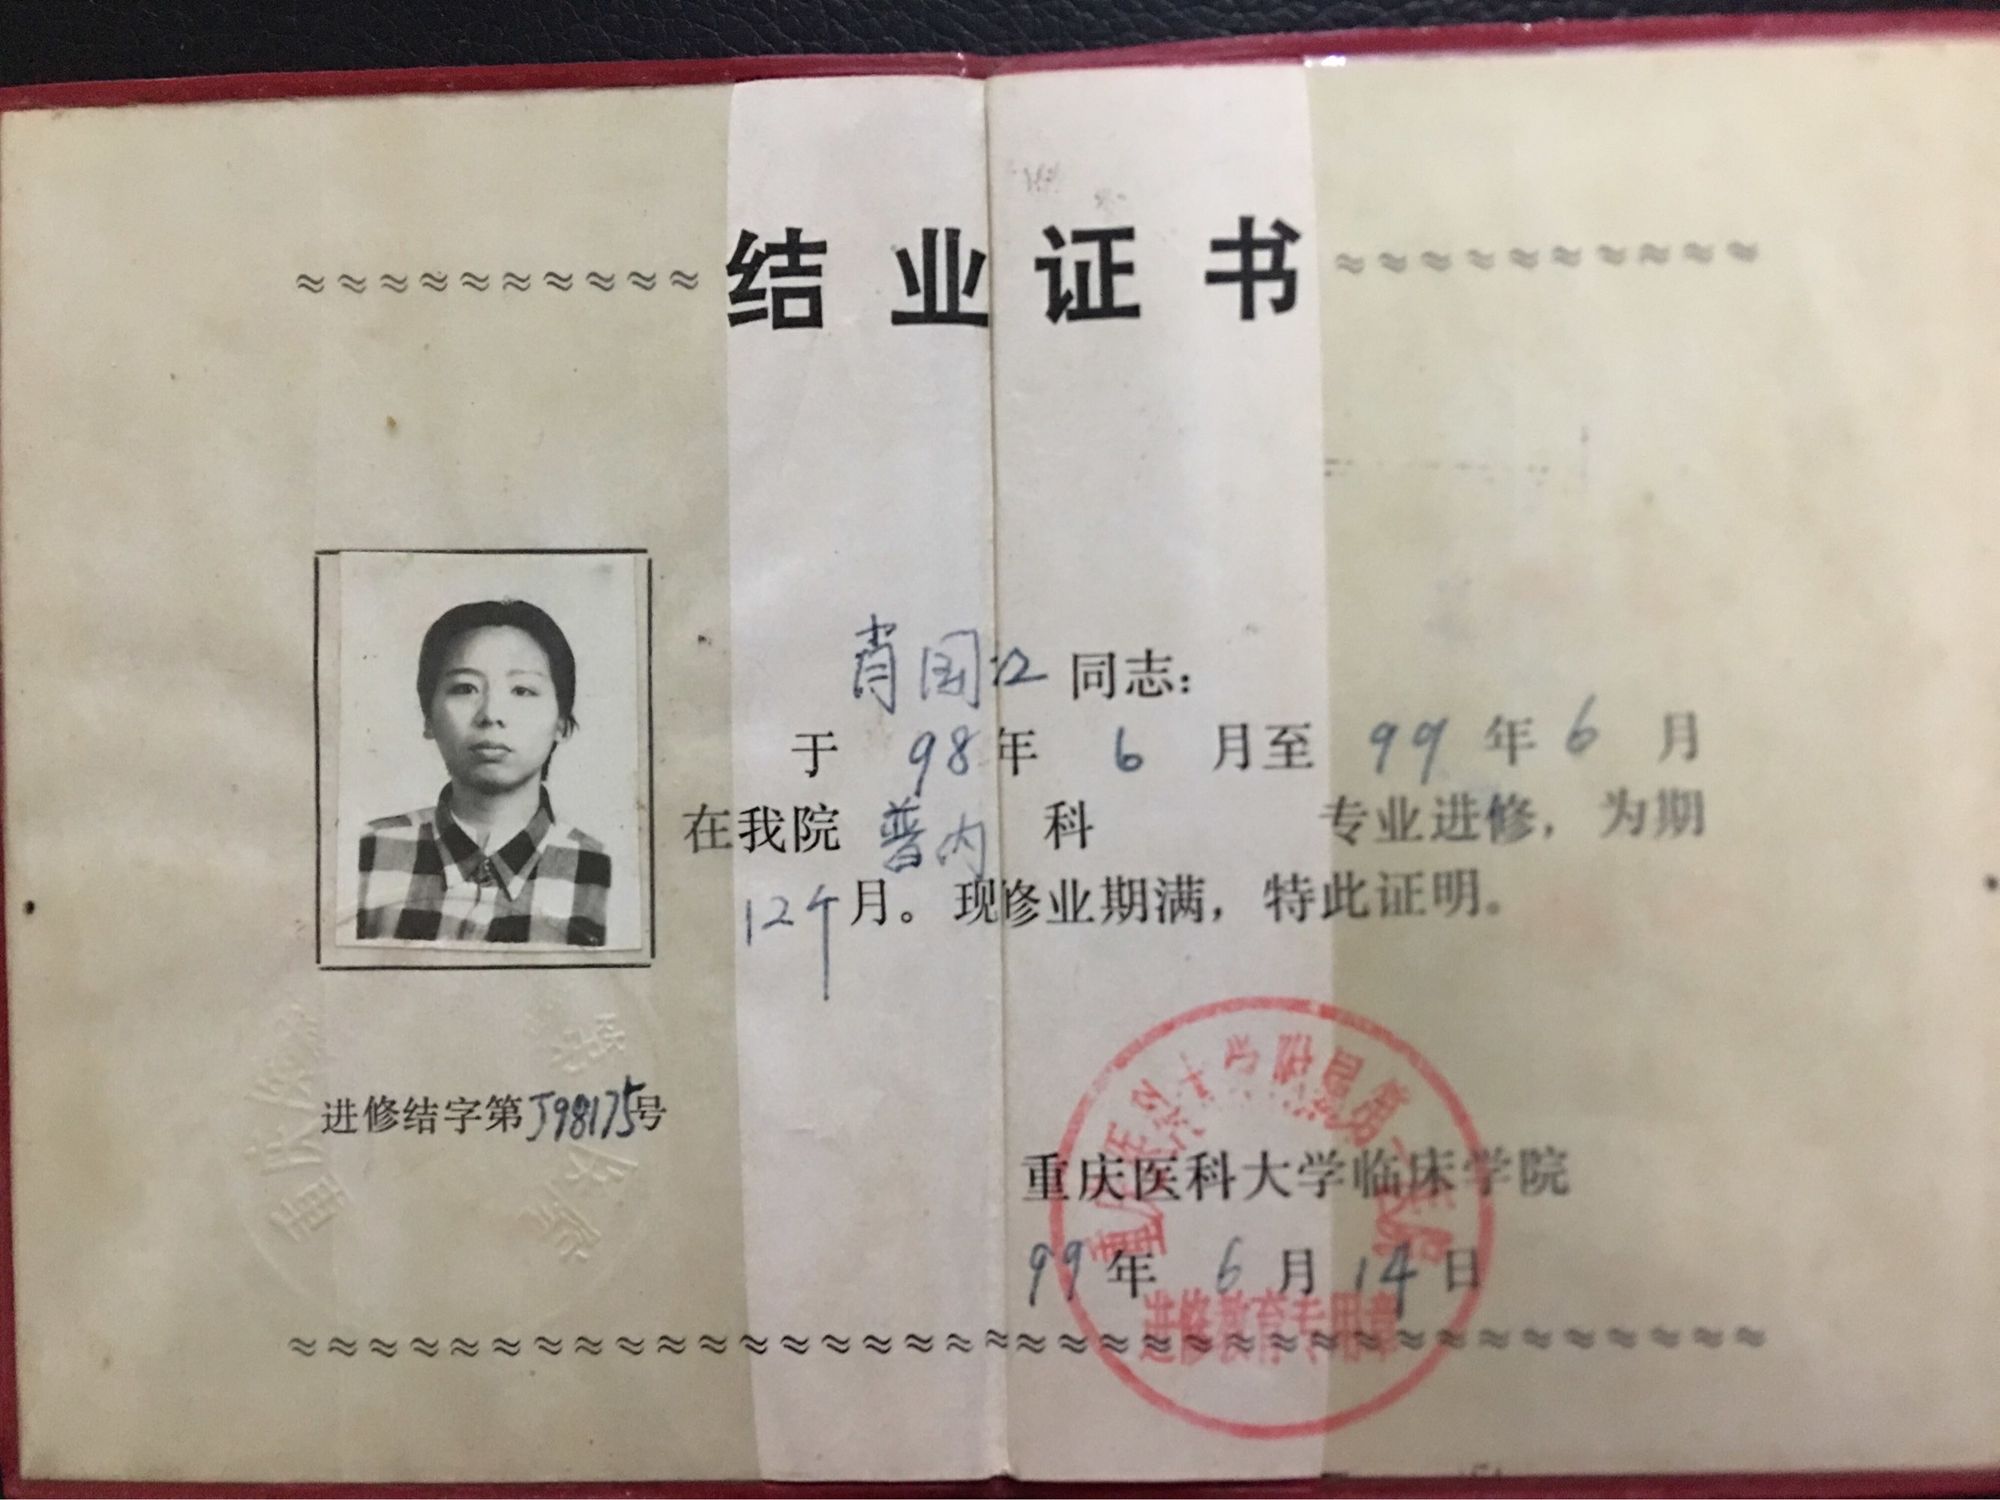 结业证书
肖国江 同志:
于 98 年 6 月至 99 年 6 月
在我院 普内 科 专业进修，为期
12个月。现修业期满，特此证明。
进修结字第J98175号
重庆医科大学临床学院
99年 6月 14日
重庆医科大学附属第二医院
进修教育专用章